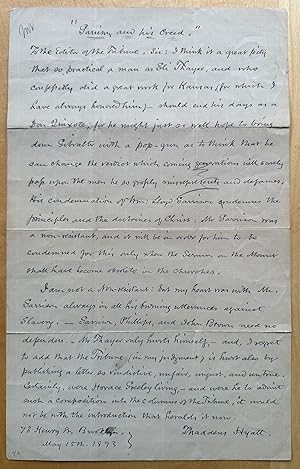 "Garrison and his Creed."
To the Editor of the Tribune, Sir: I think it a great pity
that so practical a man as Eli Thayer, and who
confessedly did a great work for Kansas, (for which I
have always honored him) should end his days as a
Don Quixote; for he might just as well hope to bring
down Gibralter with a pop-gun as to think that he
can change the verdict which coming generations will surely
pass upon the men he so grossly misrepresents and defames.
His condemnation of Wm. Lloyd Garrison condemns the
principles and the doctrines of Christ. Mr Garrison was
a non-resistant, and it will be in order for him to be
condemned for this, only when the Sermon on the Mount
shall have become obsolete in the Churches.
I am not a Non-resistant: but my heart was with Mr.
Garrison always in all his burning utterances against
Slavery. — Garrison, Phillips, and John Brown need no
defenders. Mr Thayer only hurts himself — and, I regret
to add that the Tribune (in my judgment) is hurt also by
publishing a letter so vindictive, unfair, unjust, and untrue.
Certainly, were Horace Greeley living — and were he to admit
such a composition into the columns of the Tribune, it would
not be with the introduction that heralds it now.
Thaddeus Hyatt.
73 Henry St. Brooklyn
May 15th. 1893